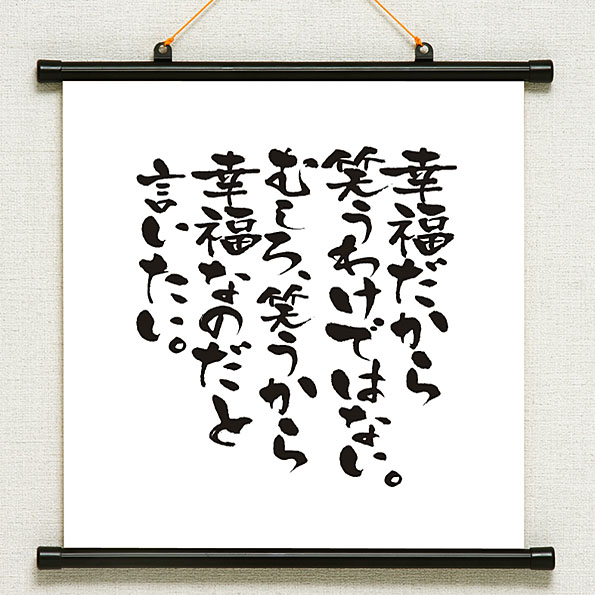 幸福だから
笑うわけではない。
むしろ、笑うから
幸福なのだと
言いたい。